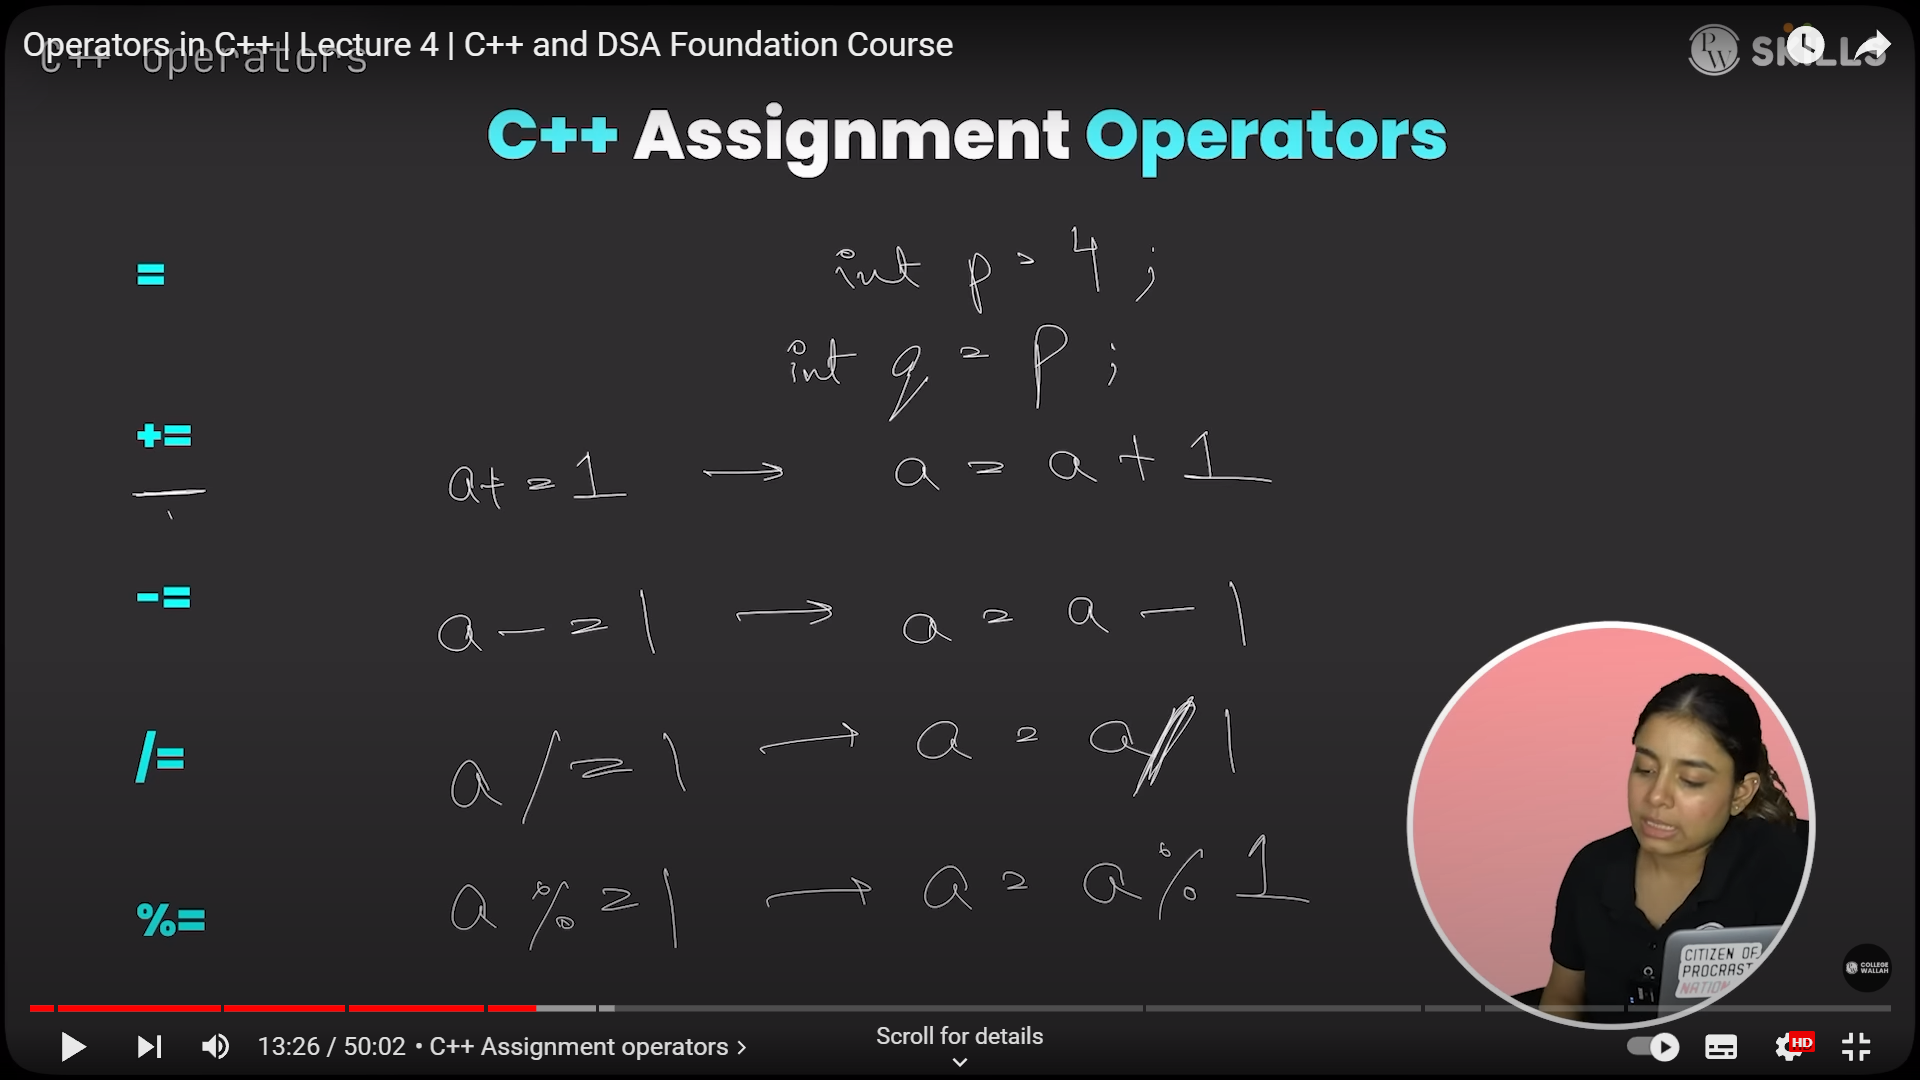 Operators in C++ | Lecture 4 | C++ and DSA Foundation Course
C++ operators
PW SKILLS
C++ Assignment Operators
=
int p = 4 ;
int q = p ;
+=
a+ = 1 → a = a + 1
-=
a - = 1 → a = a - 1
/=
a / = 1 → a = a / 1
%=
a % = 1 → a = a % 1
CITIZEN OF
PROCRAST
NATION
COLLEGE
WALLAH
13:26 / 50:02 • C++ Assignment operators >
Scroll for details
HD